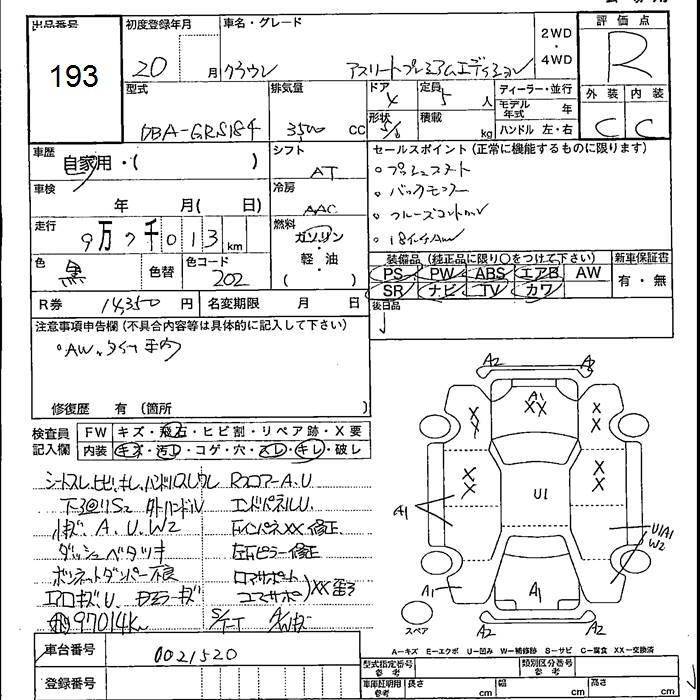 出品番号
193
初度登録年月
20 月
車名・グレード
クラウン アスリートプレミアムエディション
2WD
・
4WD
評価点
R
外装 内装
C C
型式
DBA-GRS184
排気量
3500 cc
ドア
4
形状
定員
5 人
積載
kg
ディーラー・並行
モデル年式 年
ハンドル 左・右
車歴
自家用・( )
車検
年 月( 日)
走行
9万7千013km
色
黒
色替
色コード
202
シフト
AT
冷房
AAC
燃料
ガソリン
・
軽・油
( )
セールスポイント(正常に機能するものに限ります)
。プッシュスタート
。バックモニター
。クルーズコントロール
。18インチAW
装備品(純正品に限り○をつけて下さい)
PS PW ABS エアB AW
SR ナビ TV カワ
新車保証書
有・無
後日品
R券 14,350円
名変期限 月 日
注意事項申告欄(不具合内容等は具体的に記入して下さい)
。AW、タイヤ
修復歴 有(箇所 )
検査員
記入欄
FW キズ・飛石・ヒビ割・リペア跡・X要
内装 キズ・汚レ・コゲ・穴・スレ・キレ・破レ
A.U.W2
ダッシュベタツキ
ボンネットダンパー不良
97014km
RコアーA.U
エンドパネルU.
XX 修正
左右ピラー修正
A2 A2
A1
XX
X X
X X
X X
X X
U1
A1
U1A1
W2
A1
A1
A2 A2
スペア
A-キズ E-エクボ U-凹み W-補修跡 S-サビ C-腐食 XX-交換済
車台番号
0021520
登録番号
型式指定番号
参考
類別区分番号
参考
車庫証明用
参考
長さ cm
幅 cm
高さ cm